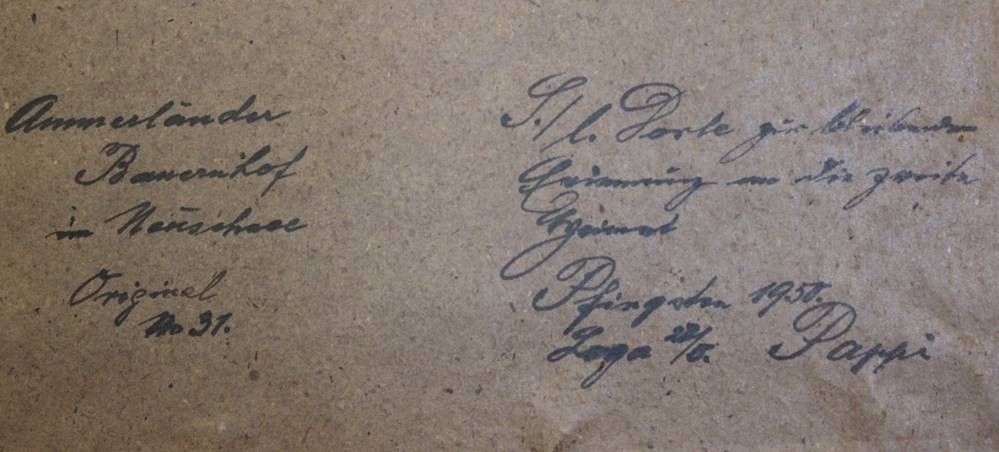 Ammerländer
Bauernhof
im
Original
No 31.
S./l. Dorle zur bleibenden
Erinnerung an die zweite
Heimat
Pfingsten 1950.
Loga 28/5. Pappi